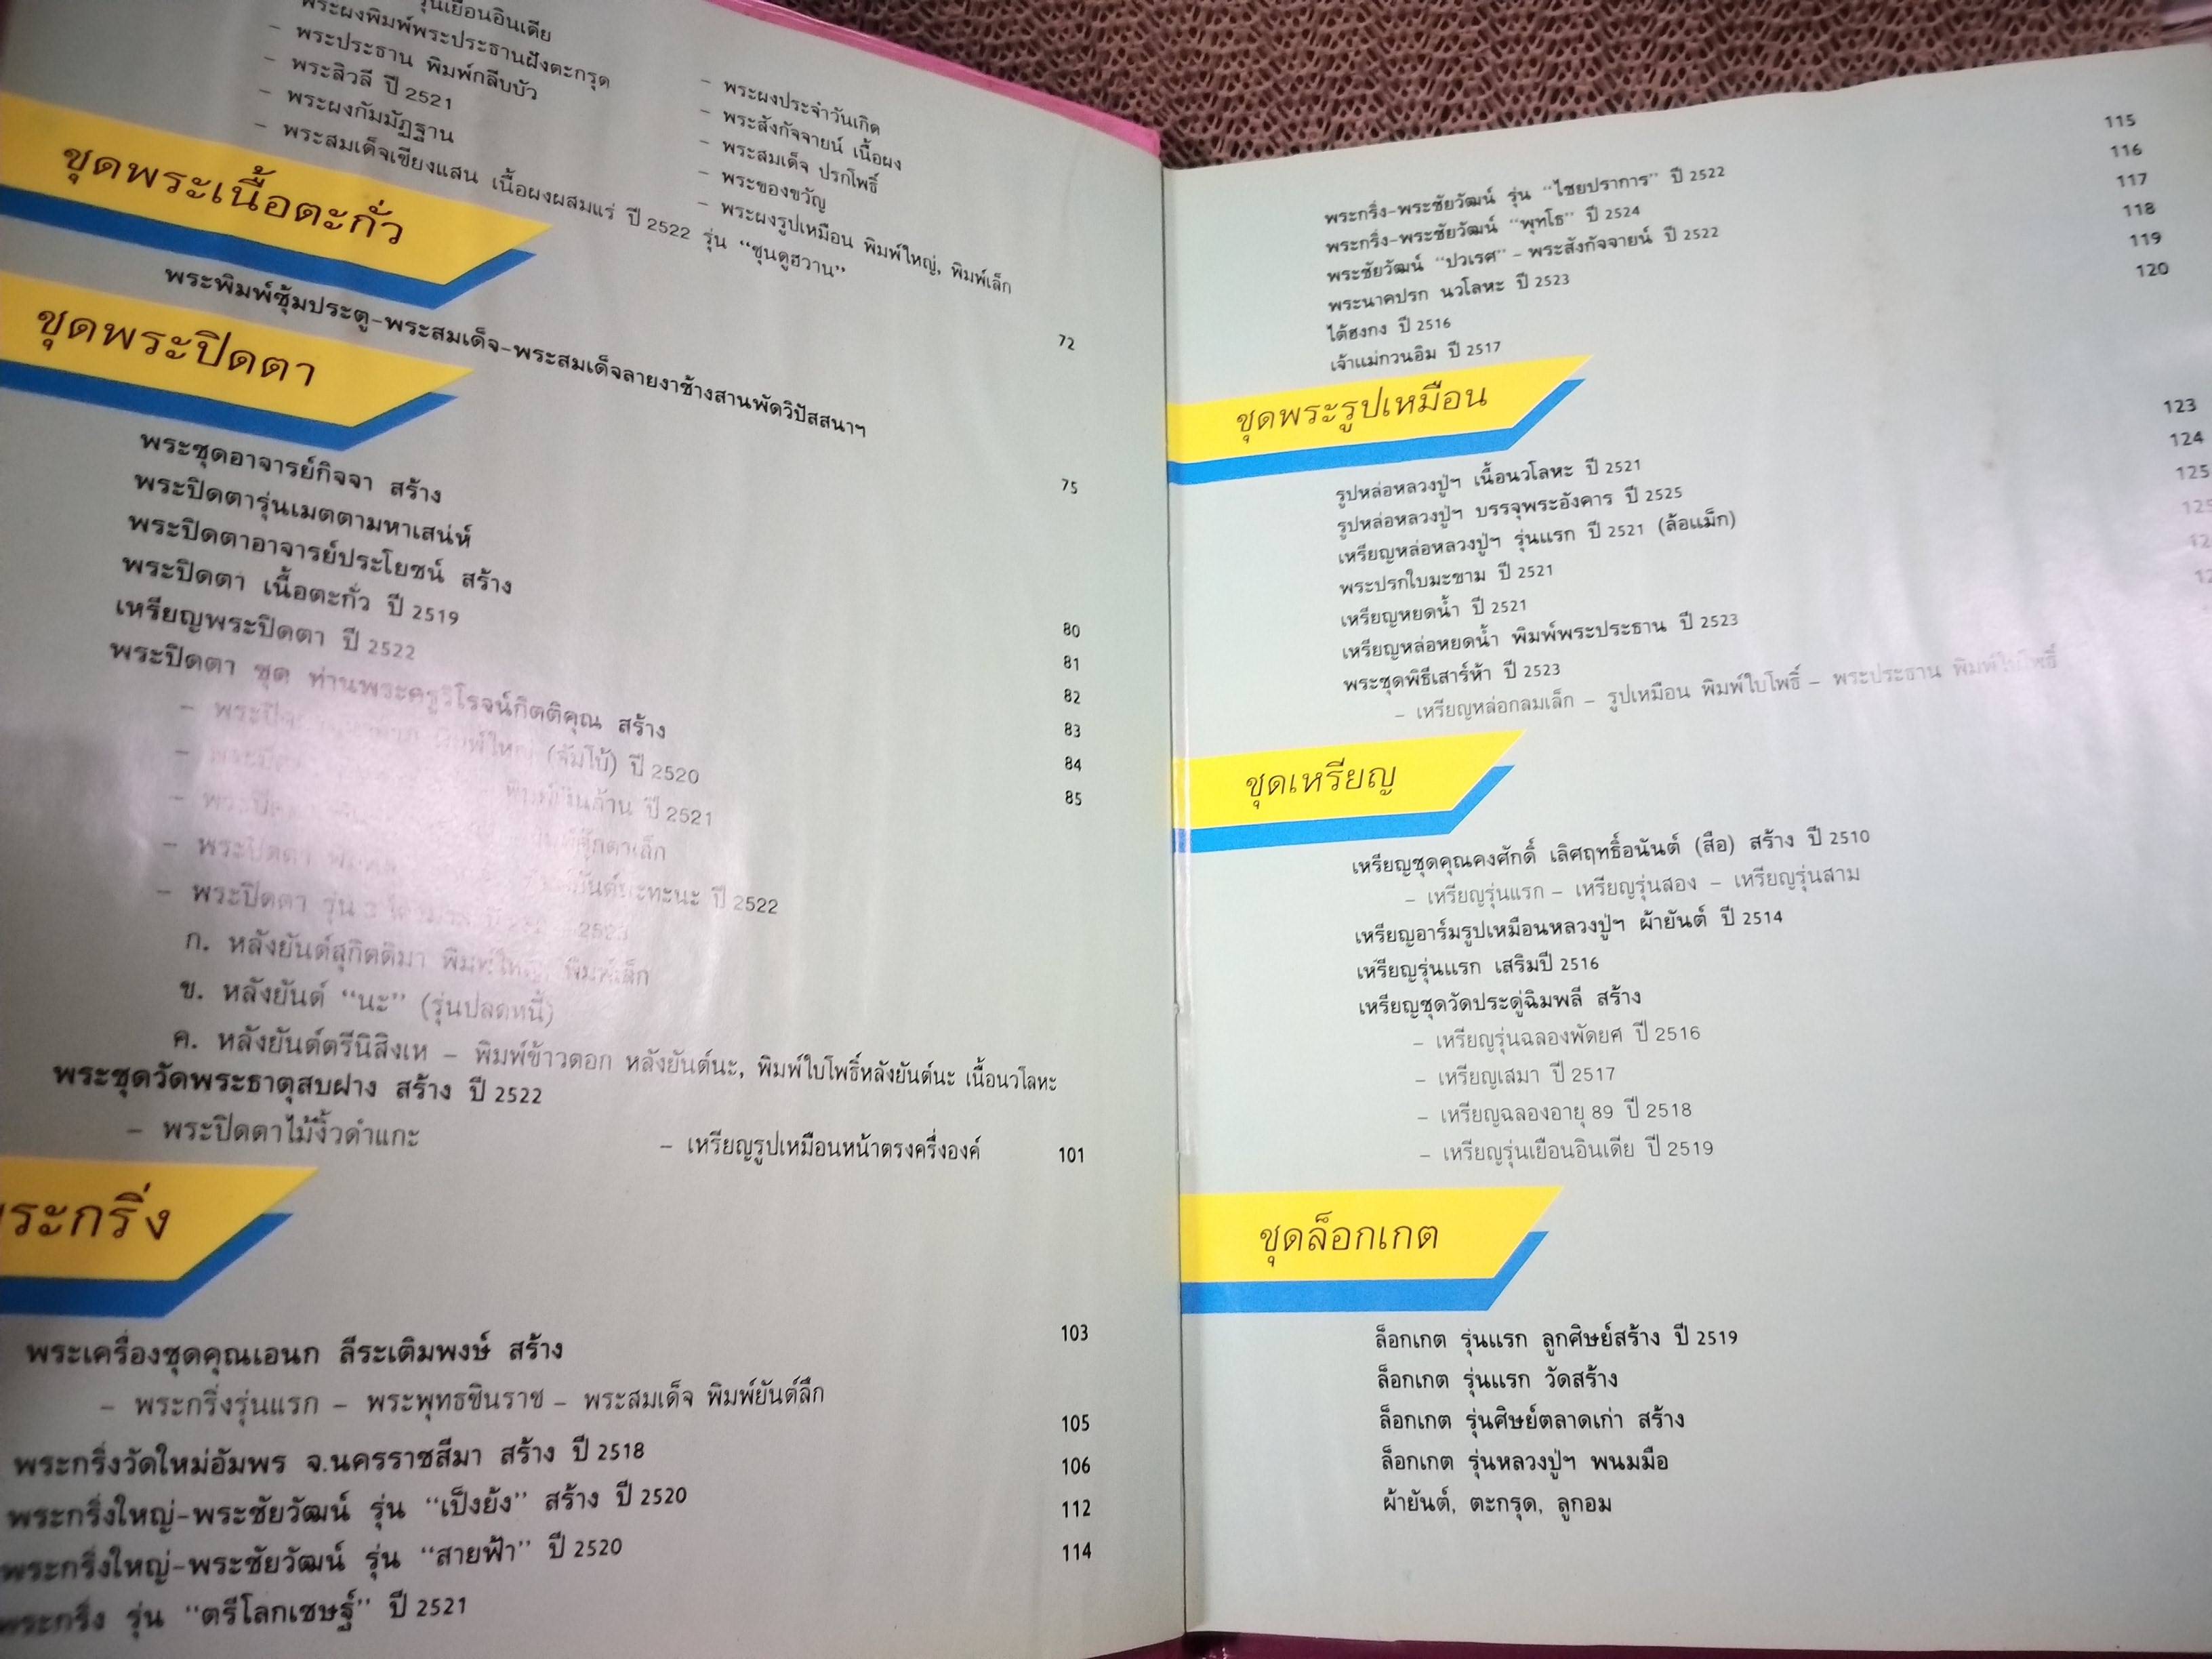 รุ่นเยือนอินเดีย
พระผงพิมพ์พระประธานฝังตะกรุด
– พระประธาน พิมพ์กลีบบัว
– พระสิวลี ปี 2521
– พระผงกัมมัฏฐาน
– พระสมเด็จเชียงแสน เนื้อผงผสมแร่ ปี 2522 รุ่น “ชุนดูฮวาน”
– พระผงประจำวันเกิด
– พระสังกัจจายน์ เนื้อผง
– พระสมเด็จ ปรกโพธิ์
– พระของขวัญ
– พระผงรูปเหมือน พิมพ์ใหญ่, พิมพ์เล็ก
ชุดพระเนื้อตะกั่ว
พระพิมพ์ซุ้มประตู-พระสมเด็จ-พระสมเด็จลายงาช้างสานพัดวิปัสสนาฯ 72
ชุดพระปิดตา
พระชุดอาจารย์กิจจา สร้าง 75
พระปิดตารุ่นเมตตามหาเสน่ห์ 80
พระปิดตาอาจารย์ประโยชน์ สร้าง 81
พระปิดตา เนื้อตะกั่ว ปี 2519 82
เหรียญพระปิดตา ปี 2522 83
พระปิดตา ชุด ท่านพระครูวิโรจน์กิตติคุณ สร้าง 84
– พระปิดตา พิมพ์ใหญ่ (จัมโบ้) ปี 2520 85
– ปี 2521
– พิมพ์ตุ๊กตาเล็ก
– พระปิดตา ปี 2522
– พระปิดตา รุ่น
ก. หลังยันต์สุกิตติมา พิมพ์ใหญ่, พิมพ์เล็ก
ข. หลังยันต์ “นะ” (รุ่นปลดหนี้)
ค. หลังยันต์ตรีนิสิงเห – พิมพ์ข้าวตอก หลังยันต์นะ, พิมพ์ใบโพธิ์หลังยันต์นะ เนื้อนวโลหะ
พระชุดวัดพระธาตุสบฝาง สร้าง ปี 2522
– พระปิดตาไม้งิ้วดำแกะ – เหรียญรูปเหมือนหน้าตรงครึ่งองค์ 101
พระกริ่ง
พระเครื่องชุดคุณเอนก ลีระเติมพงษ์ สร้าง 103
– พระกริ่งรุ่นแรก – พระพุทธชินราช – พระสมเด็จ พิมพ์ยันต์ลึก
พระกริ่งวัดใหม่อัมพร จ.นครราชสีมา สร้าง ปี 2518 105
พระกริ่งใหญ่-พระชัยวัฒน์ รุ่น “เป็งย้ง” สร้าง ปี 2520 106
พระกริ่งใหญ่-พระชัยวัฒน์ รุ่น “สายฟ้า” ปี 2520 112
พระกริ่ง รุ่น “ตรีโลกเชษฐ์” ปี 2521 114
พระกริ่ง-พระชัยวัฒน์ รุ่น “ไชยปราการ” ปี 2522 115
พระกริ่ง-พระชัยวัฒน์ “พุทโธ” ปี 2524 116
พระชัยวัฒน์ “ปวเรศ” – พระสังกัจจายน์ ปี 2522 117
พระนาคปรก นวโลหะ ปี 2523 118
ไต้ฮงกง ปี 2516 119
เจ้าแม่กวนอิม ปี 2517 120
ชุดพระรูปเหมือน
รูปหล่อหลวงปู่ฯ เนื้อนวโลหะ ปี 2521 123
รูปหล่อหลวงปู่ฯ บรรจุพระอังคาร ปี 2525 124
เหรียญหล่อหลวงปู่ฯ รุ่นแรก ปี 2521 (ล้อแม็ก) 125
พระปรกใบมะขาม ปี 2521 125
เหรียญหยดน้ำ ปี 2521
เหรียญหล่อหยดน้ำ พิมพ์พระประธาน ปี 2523
พระชุดพิธีเสาร์ห้า ปี 2523
– เหรียญหล่อกลมเล็ก – รูปเหมือน พิมพ์ใบโพธิ์ – พระประธาน พิมพ์ใบโพธิ์
ชุดเหรียญ
เหรียญชุดคุณคงศักดิ์ เลิศฤทธิ์อนันต์ (สือ) สร้าง ปี 2510
– เหรียญรุ่นแรก – เหรียญรุ่นสอง – เหรียญรุ่นสาม
เหรียญอาร์มรูปเหมือนหลวงปู่ฯ ผ้ายันต์ ปี 2514
เหรียญรุ่นแรก เสริมปี 2516
เหรียญชุดวัดประดู่ฉิมพลี สร้าง
– เหรียญรุ่นฉลองพัดยศ ปี 2516
– เหรียญเสมา ปี 2517
– เหรียญฉลองอายุ 89 ปี 2518
– เหรียญรุ่นเยือนอินเดีย ปี 2519
ชุดล็อกเกต
ล็อกเกต รุ่นแรก ลูกศิษย์สร้าง ปี 2519
ล็อกเกต รุ่นแรก วัดสร้าง
ล็อกเกต รุ่นศิษย์ตลาดเก่า สร้าง
ล็อกเกต รุ่นหลวงปู่ฯ พนมมือ
ผ้ายันต์, ตะกรุด, ลูกอม